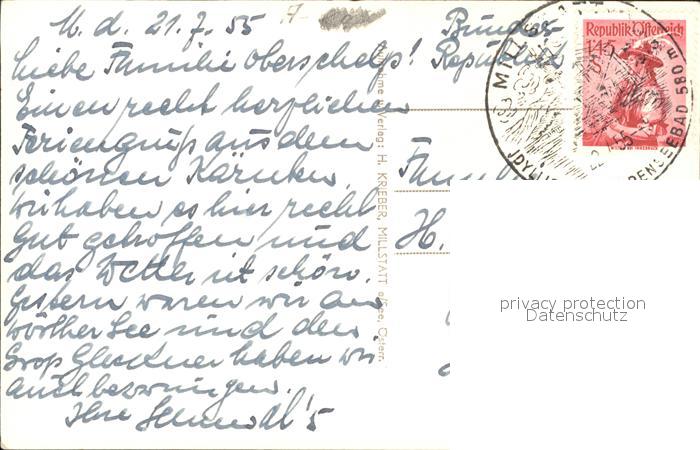 M. d. 21.7.55
Liebe Familie Oberschelp!
Einen recht herzlichen
Feriengruß aus dem
schönen Kärnten.
Wir haben es hier recht
gut getroffen und
das Wetter ist schön.
Gestern waren wir am
Wörther See und den
Groß Glockner haben wir
auch bezwungen.
Ihre
Bundes
Republik
H.
Verlag: H. KRIEBER, MILLSTATT a/See, Österr.
Republik Österreich
1'45
SEEBAD 580
privacy protection
Datenschutz